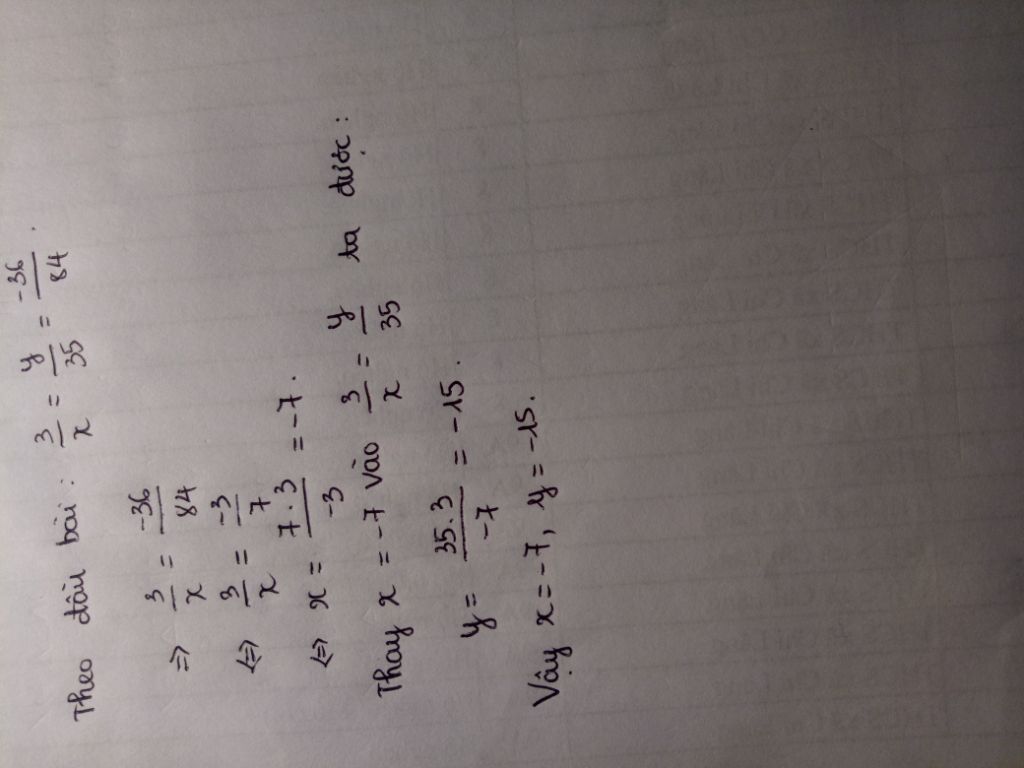 Theo đầu bài: 3/x = y/35 = -36/84.
=> 3/x = -36/84
<=> 3/x = -3/7
<=> x = 7.3/-3 = -7.
Thay x = -7 vào 3/x = y/35 ta được:
y = 35.3/-7 = -15.
Vậy x = -7, y = -15.